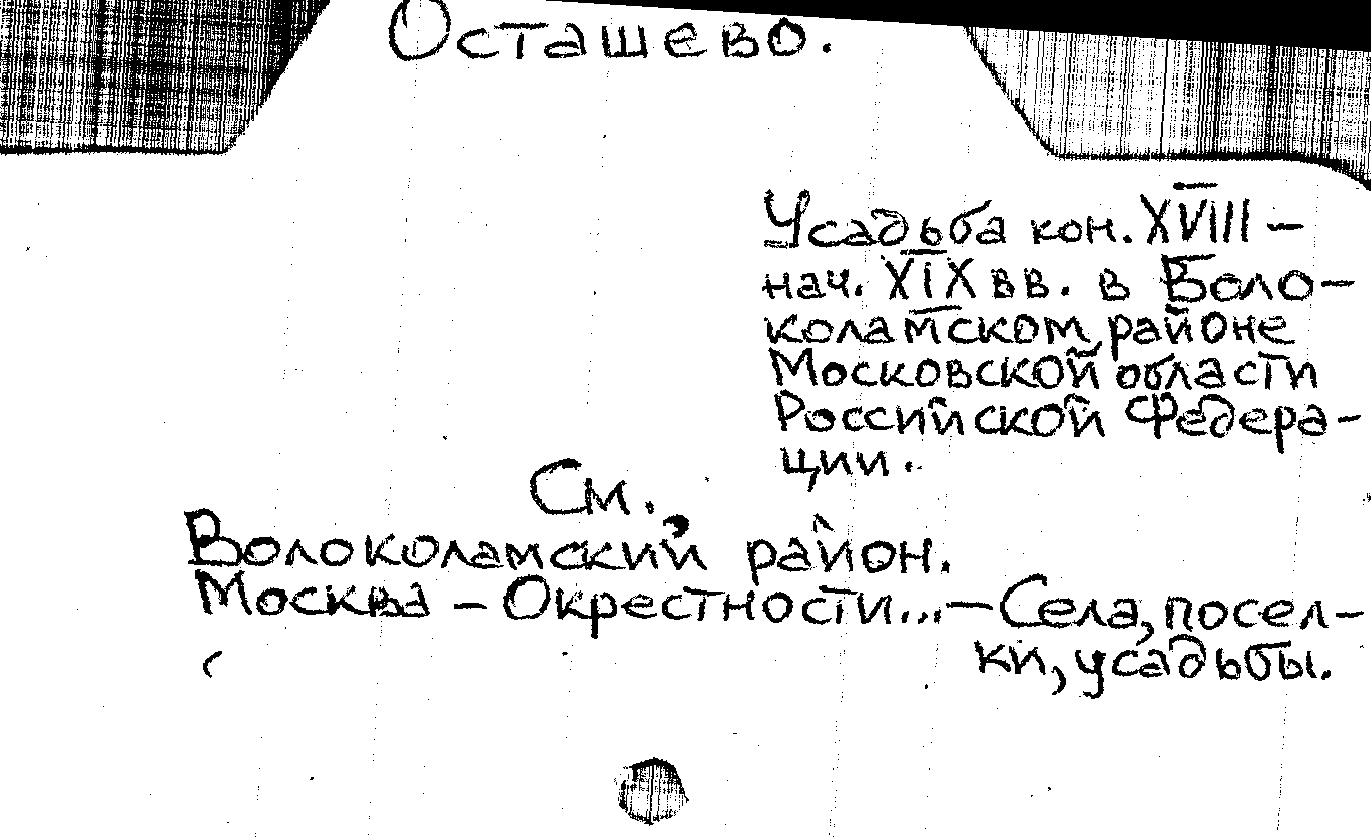 Осташево.
Усадьба кон. XVIII –
нач. XIX вв. в Воло-
коламском районе
Московской области
Российской Федера-
ции.
См.
Волоколамский район.
Москва – Окрестности... – Села, посел-
ки, усадьбы.